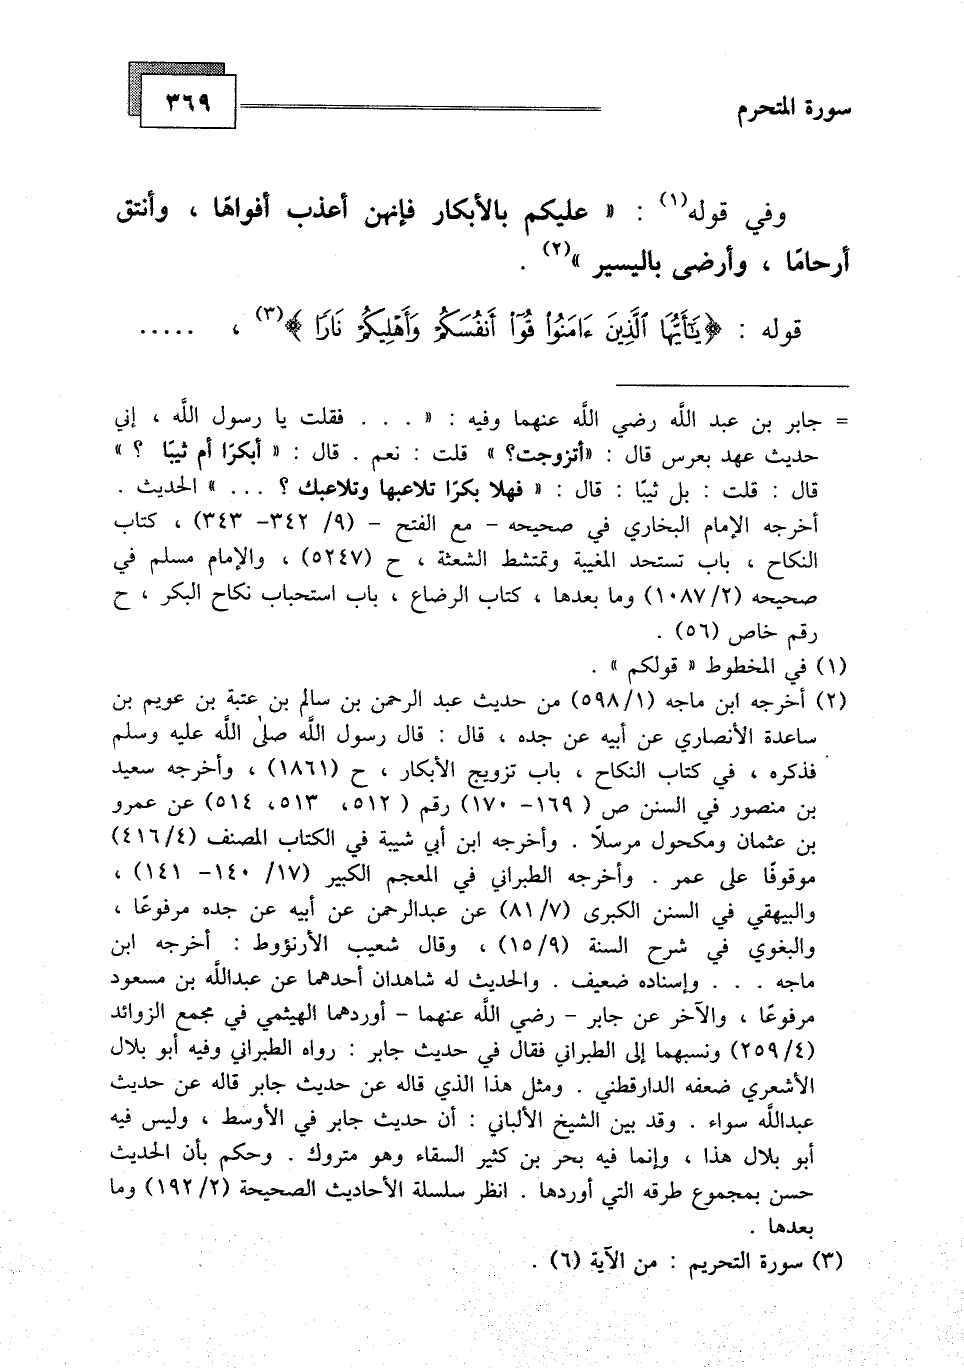 سورة المتحرم
٣٦٩
وفي قوله(١) : « عليكم بالأبكار فإنهن أعذب أفواهًا ، وأنتق
أرحامًا ، وأرضى باليسير »(٢) .
قوله : ﴿يَٰٓأَيُّهَا ٱلَّذِينَ ءَامَنُوا۟ قُوٓا۟ أَنفُسَكُمْ وَأَهْلِيكُمْ نَارًا ﴾(٣) ، .....
= جابر بن عبد اللَّه رضي اللَّه عنهما وفيه : « . . . فقلت يا رسول اللَّه ، إني
حديث عهد بعرس قال : «أتزوجت؟ » قلت : نعم . قال : « أبكرًا أم ثيبًا ؟ »
قال : قلت : بل ثيبًا : قال : « فهلا بكرًا تلاعبها وتلاعبك ؟ ... » الحديث .
أخرجه الإمام البخاري في صحيحه - مع الفتح - (٩/ ٣٤٢- ٣٤٣) ، كتاب
النكاح ، باب تستحد المغيبة وتمتشط الشعثة ، ح (٥٢٤٧) ، والإمام مسلم في
صحيحه (١٠٨٧/٢) وما بعدها ، كتاب الرضاع ، باب استحباب نكاح البكر ، ح
رقم خاص (٥٦) .
(١) في المخطوط « قولكم » .
(٢) أخرجه ابن ماجه (٥٩٨/١) من حديث عبد الرحمن بن سالم بن عتبة بن عويم بن
ساعدة الأنصاري عن أبيه عن جده ، قال : قال رسول اللَّه صلى اللَّه عليه وسلم
فذكره ، في كتاب النكاح ، باب تزويج الأبكار ، ح (١٨٦١) ، وأخرجه سعيد
بن منصور في السنن ص ( ١٦٩- ١٧٠) رقم ( ٥١٢، ٥١٣، ٥١٤) عن عمرو
بن عثمان ومكحول مرسلًا . وأخرجه ابن أبي شيبة في الكتاب المصنف (٤١٦/٤)
موقوفًا على عمر . وأخرجه الطبراني في المعجم الكبير (١٧/ ١٤٠- ١٤١) ،
والبيهقي في السنن الكبرى (٨١/٧) عن عبدالرحمن عن أبيه عن جده مرفوعًا ،
والبغوي في شرح السنة (١٥/٩) ، وقال شعيب الأرنؤوط : أخرجه ابن
ماجه . . . وإسناده ضعيف . والحديث له شاهدان أحدهما عن عبداللَّه بن مسعود
مرفوعًا ، والآخر عن جابر - رضي اللَّه عنهما - أوردهما الهيثمي في مجمع الزوائد
(٢٥٩/٤) ونسبهما إلى الطبراني فقال في حديث جابر : رواه الطبراني وفيه أبو بلال
الأشعري ضعفه الدارقطني . ومثل هذا الذي قاله عن حديث جابر قاله عن حديث
عبداللَّه سواء . وقد بين الشيخ الألباني : أن حديث جابر في الأوسط ، وليس فيه
أبو بلال هذا ، وإنما فيه بحر بن كثير السقاء وهو متروك . وحكم بأن الحديث
حسن بمجموع طرقه التي أوردها . انظر سلسلة الأحاديث الصحيحة (١٩٢/٢) وما
بعدها .
(٣) سورة التحريم : من الآية (٦) .